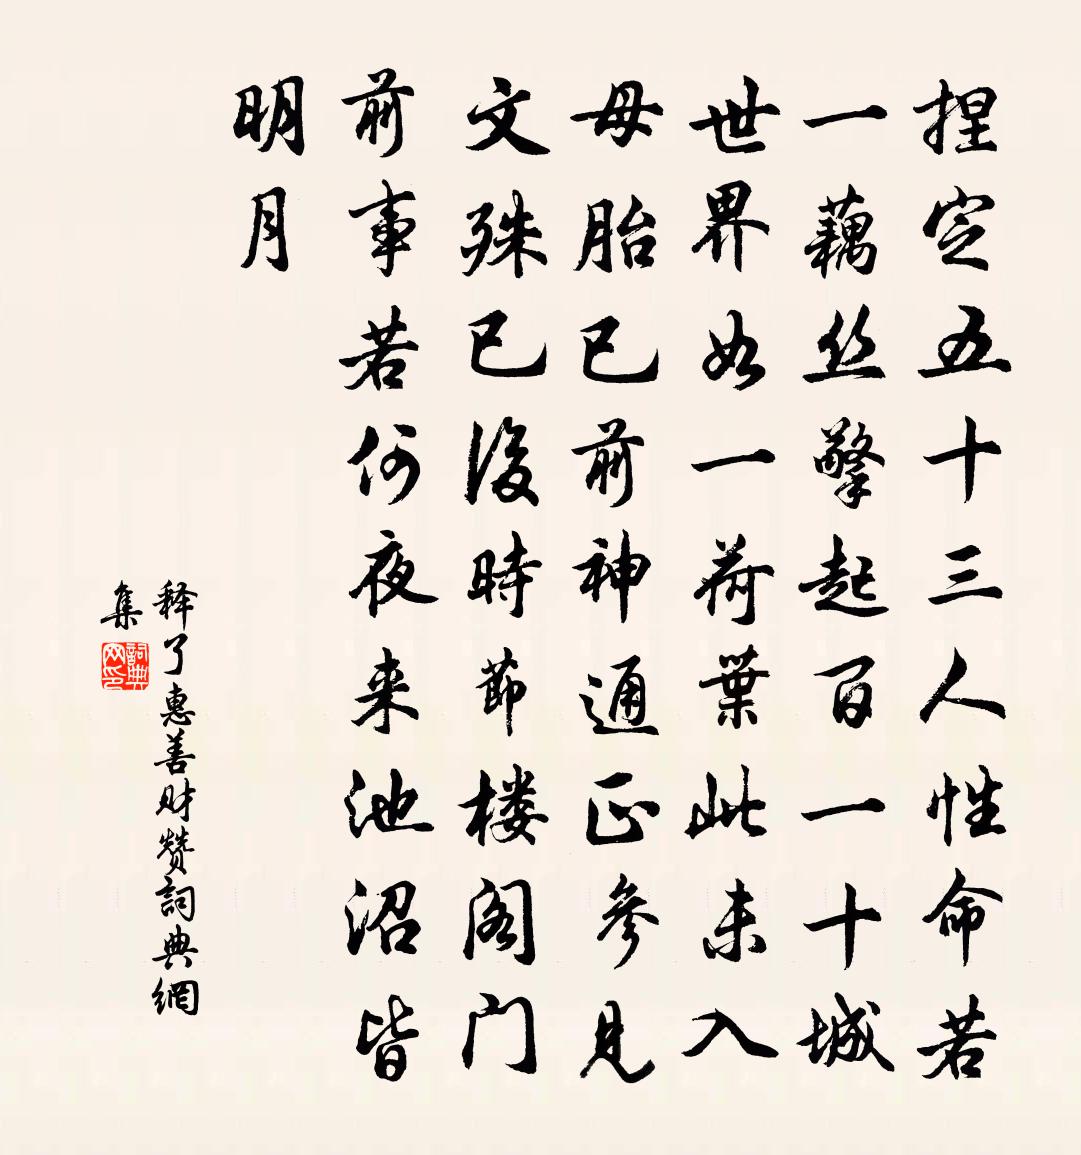 捏定五十三人性命若
一藕丝擎起百一十城
世界如一荷葉此未入
母胎已前神通正參见
文殊已後時節楼阁门
前事若何夜来池沼皆
明月
释了惠善財赞詞典網
集
詞典网印